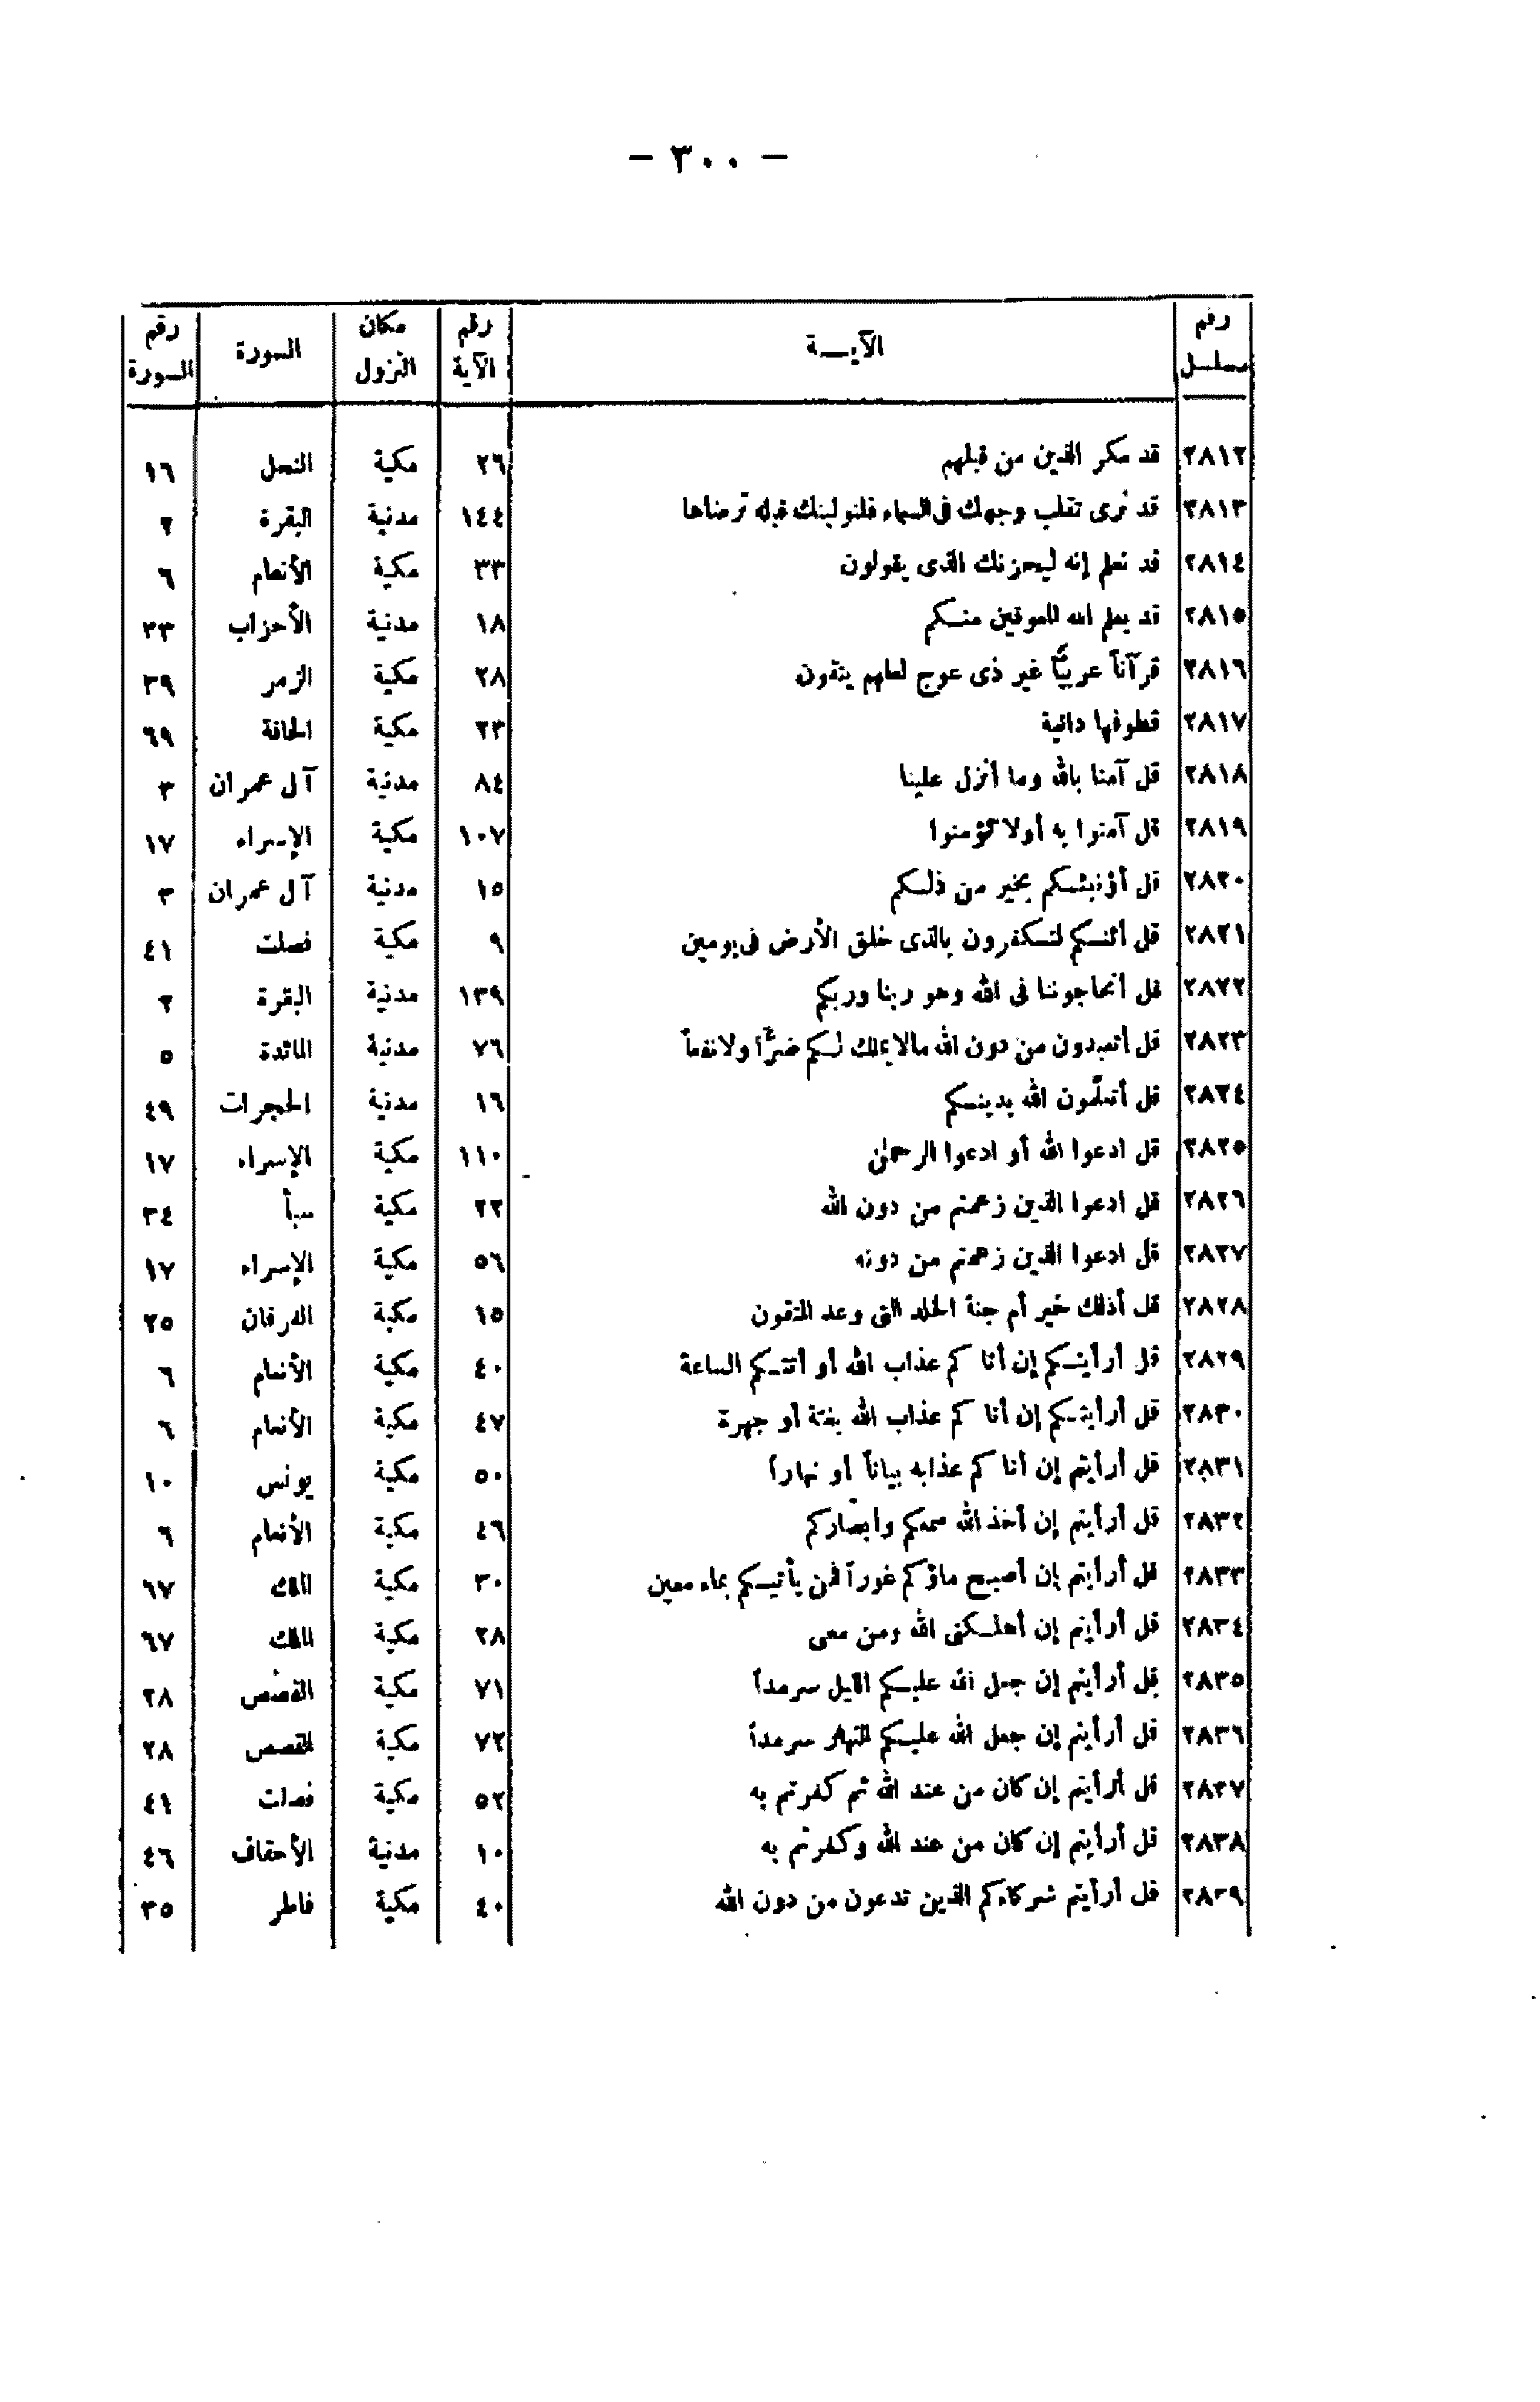 — ٣٠٠ —
رقم مسلسل | الآيــة | رقم الآية | مكان النزول | السورة | رقم السورة
٢٨١٢ | قد مكر الذين من قبلهم | ٢٦ | مكية | النحل | ١٦
٢٨١٣ | قد نرى تقلب وجهك فى السماء فلنولينك قبلة ترضاها | ١٤٤ | مدنية | البقرة | ٢
٢٨١٤ | قد نعلم إنه ليحزنك الذى يقولون | ٣٣ | مكية | الأنعام | ٦
٢٨١٥ | قد يعلم الله المعوقين منكم | ١٨ | مدنية | الأحزاب | ٣٣
٢٨١٦ | قرآناً عربيًّا غير ذى عوج لعلهم يتقون | ٢٨ | مكية | الزمر | ٣٩
٢٨١٧ | قطوفها دانية | ٢٣ | مكية | الحاقة | ٦٩
٢٨١٨ | قل آمنا بالله وما أنزل علينا | ٨٤ | مدنية | آل عمران | ٣
٢٨١٩ | قل آمنوا به أولا تؤمنوا | ١٠٧ | مكية | الإسراء | ١٧
٢٨٢٠ | قل أؤنبئكم بخير من ذلكم | ١٥ | مدنية | آل عمران | ٣
٢٨٢١ | قل أئنكم لتكفرون بالذى خلق الأرض فى يومين | ٩ | مكية | فصلت | ٤١
٢٨٢٢ | قل أتحاجوننا فى الله وهو ربنا وربكم | ١٣٩ | مدنية | البقرة | ٢
٢٨٢٣ | قل أتعبدون من دون الله مالا يملك لكم ضرًّا ولا نفعاً | ٧٦ | مدنية | المائدة | ٥
٢٨٢٤ | قل أتعلّمون الله بدينكم | ١٦ | مدنية | الحجرات | ٤٩
٢٨٢٥ | قل ادعوا الله أو ادعوا الرحمن | ١١٠ | مكية | الإسراء | ١٧
٢٨٢٦ | قل ادعوا الذين زعمتم من دون الله | ٢٢ | مكية | سبأ | ٣٤
٢٨٢٧ | قل ادعوا الذين زعمتم من دونه | ٥٦ | مكية | الإسراء | ١٧
٢٨٢٨ | قل أذلك خير أم جنة الخلد التى وعد المتقون | ١٥ | مكية | الفرقان | ٢٥
٢٨٢٩ | قل أرأيتكم إن أتاكم عذاب الله أو أتتكم الساعة | ٤٠ | مكية | الأنعام | ٦
٢٨٣٠ | قل أرأيتكم إن أتاكم عذاب الله بغتة أو جهرة | ٤٧ | مكية | الأنعام | ٦
٢٨٣١ | قل أرأيتم إن أتاكم عذابه بياتاً أو نهاراً | ٥٠ | مكية | يونس | ١٠
٢٨٣٢ | قل أرأيتم إن أخذ الله سمعكم وأبصاركم | ٤٦ | مكية | الأنعام | ٦
٢٨٣٣ | قل أرأيتم إن أصبح ماؤكم غوراً فمن يأتيكم بماء معين | ٣٠ | مكية | الملك | ٦٧
٢٨٣٤ | قل أرأيتم إن أهلكنى الله ومن معى | ٢٨ | مكية | الملك | ٦٧
٢٨٣٥ | قل أرأيتم إن جعل الله عليكم الليل سرمداً | ٧١ | مكية | القصص | ٢٨
٢٨٣٦ | قل أرأيتم إن جعل الله عليكم النهار سرمداً | ٧٢ | مكية | القصص | ٢٨
٢٨٣٧ | قل أرأيتم إن كان من عند الله ثم كفرتم به | ٥٢ | مكية | فصلت | ٤١
٢٨٣٨ | قل أرأيتم إن كان من عند الله وكفرتم به | ١٠ | مدنية | الأحقاف | ٤٦
٢٨٣٩ | قل أرأيتم شركاءكم الذين تدعون من دون الله | ٤٠ | مكية | فاطر | ٣٥